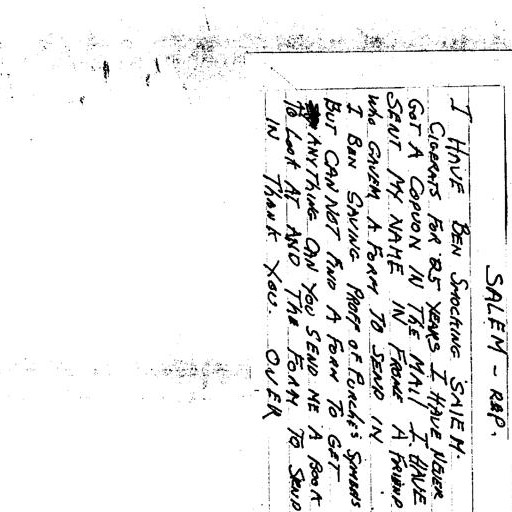 SALEM - REP.
I HAVE BEN SMOCKING SALEM.
CIGERATS FOR 25 YEARS I HAVE NEVER
GOT A COPUON IN THE MAIL I HAVE
SENT MY NAME IN FROME A FRIEND
WHO GAVEM A FORM TO SEND IN
I BEN SAVING PROFF OF PURCHE'S SYMBALS
BUT CAN NOT FIND A FORM TO GET
ANYTHING CAN YOU SEND ME A BOOK
TO LOOK AT AND THE FORM TO SEND
IN THANK YOU. OVER